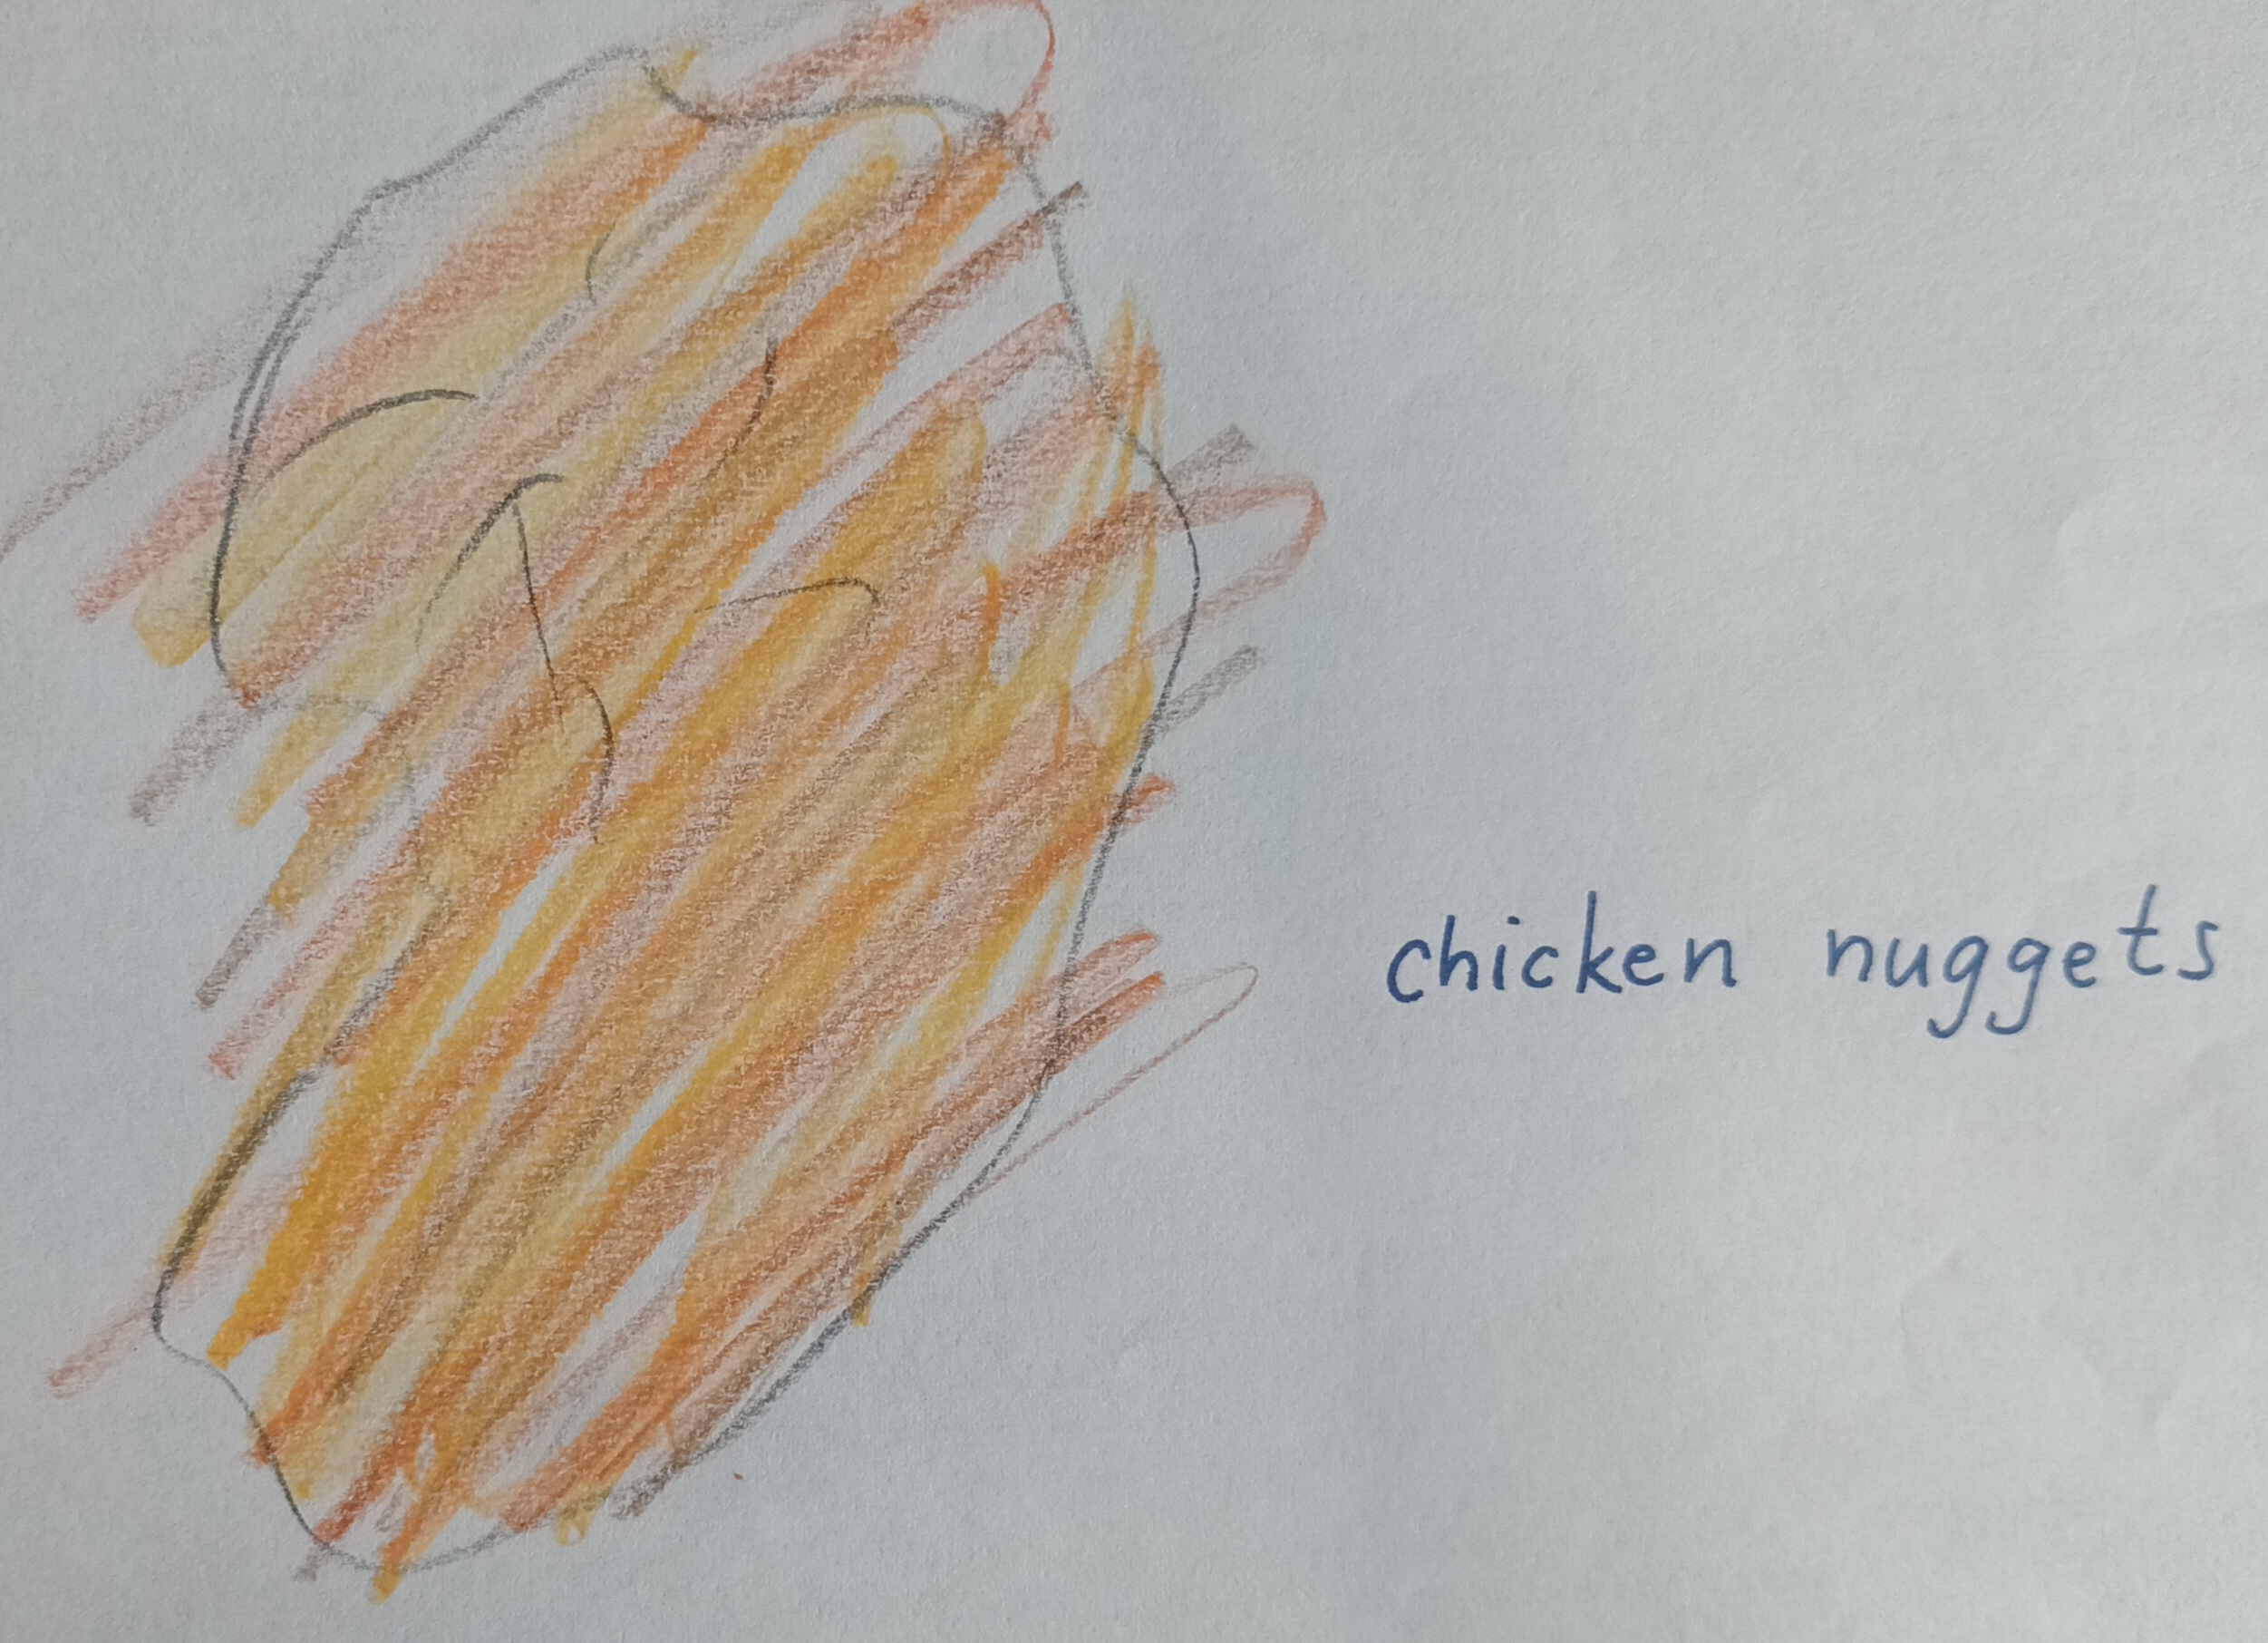 chicken nuggets